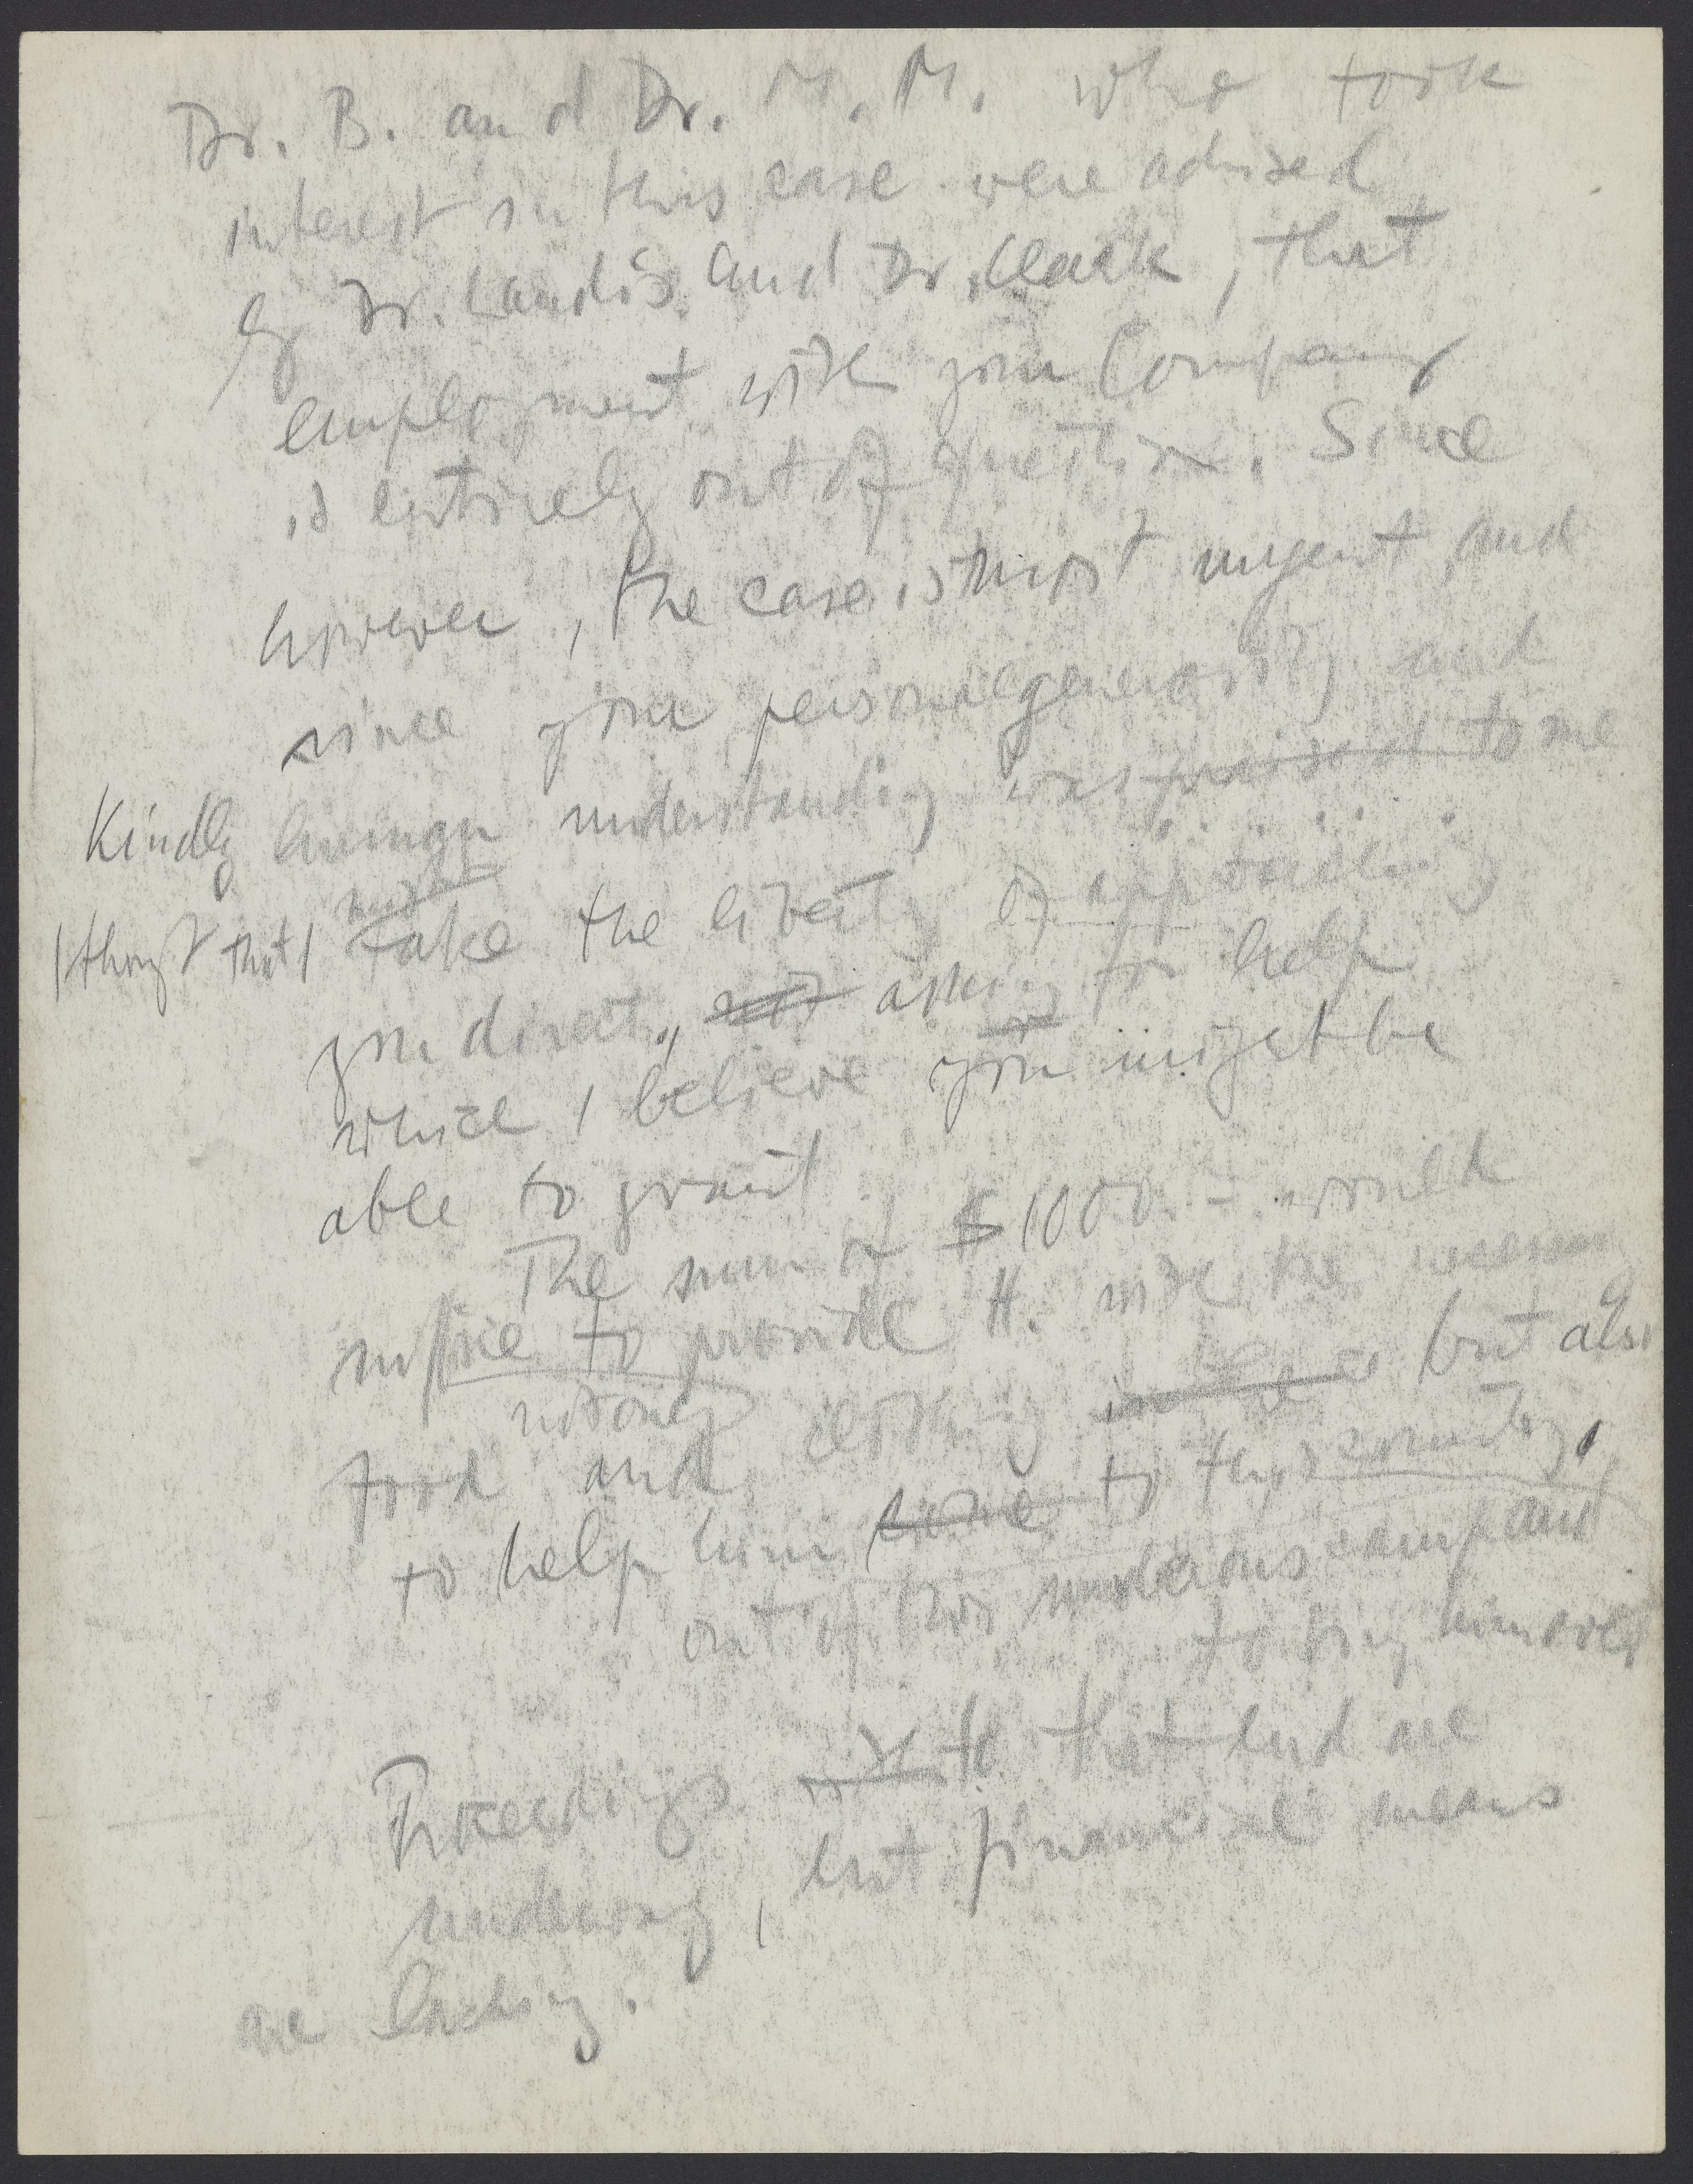 Dr. B. and Dr. M. M. who took
interest in this case were advised
by Dr. Landis and Dr. Clark, that
employment with your Company
is entirely out of question. Since
however, the case is most urgent and
since your personal generosity and
Kindly human understanding was praised to me
I thought that I might take the liberty of approaching
you direct, asking for help
which I believe you might be
able to grant
The sum of $1000.- would
suffice to provide H. with the necessary
not only
food and clothing but also
to help him come to this country,
out of this murderous camp and
to bring him over
Proceedings with to that end are
underway, but financial means
are lacking.